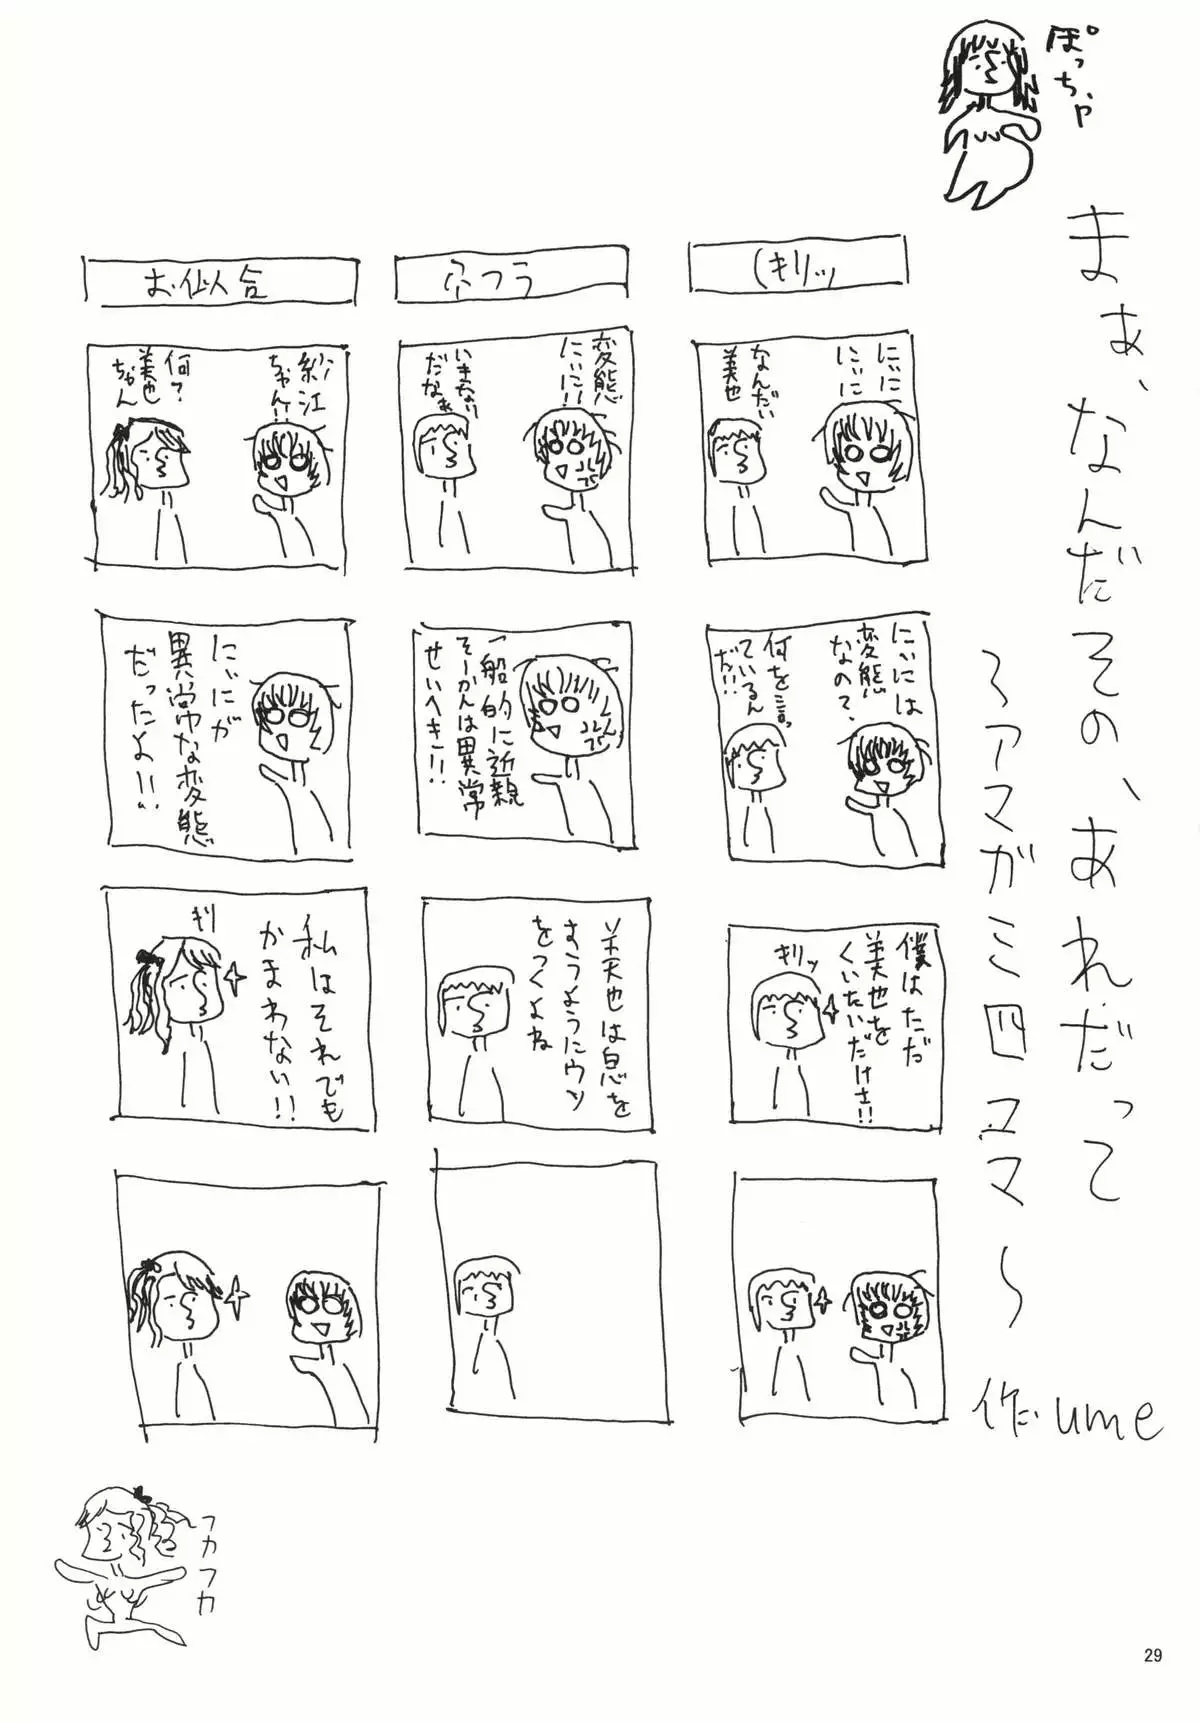 ぽっちゃ
まぁ、なんだその、あれだって
～アマガミ四コマ～
作ume
(キリッ
にぃに
にぃに
なんだい
美也
にぃには
変態
なので、
何を言っ
ているん
だ!!!
僕はただ
美也を
くいたいだけさ!!
キリッ
変態
にぃに!!
いきなり
だなぁ
一般的に近親
そーかんは異常
せいへき!!
美也は息を
すうようにウソ
をつくよね
お似合
紗江
ちゃん!!
何?
美也
ちゃん
にぃにが
異常な変態
だったよ!!
私はそれでも
かまわない!!
キリ
フカフカ
29